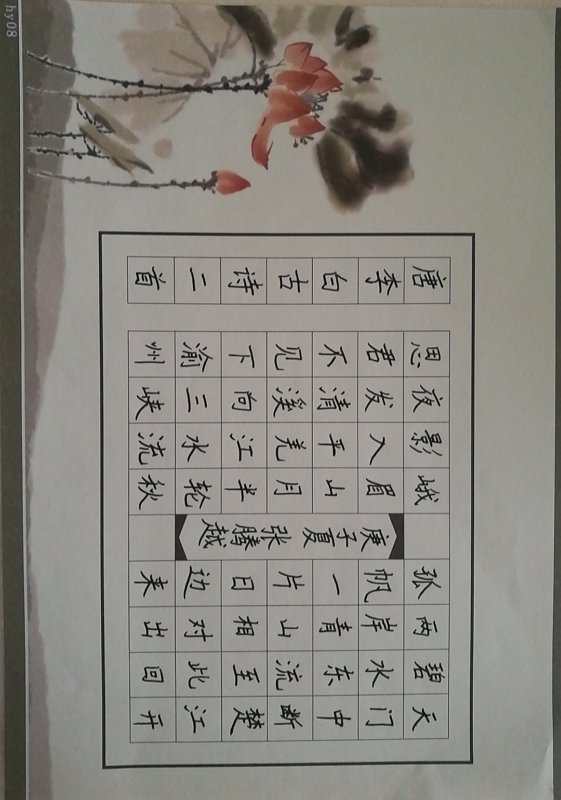 天门中断楚江开
碧水东流至此回
两岸青山相对出
孤帆一片日边来
庚子夏张腾越
峨眉山月半轮秋
影入平羌江水流
夜发清溪向三峡
思君不见下渝州
唐李白古诗二首
hy08